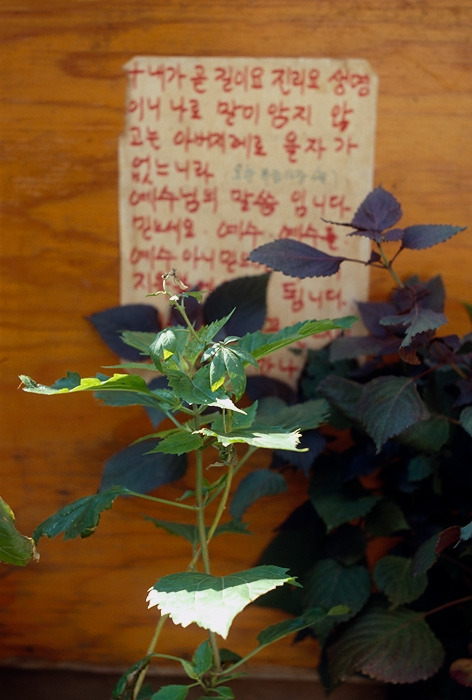 내가 곧 길이요 진리요 생명
이니 나로 말미암지 않
고는 아버지께로 올자가
없느니라
예수님의 말씀 입니다
믿으세요 예수 예수를
예수 아니믿으
됩니다